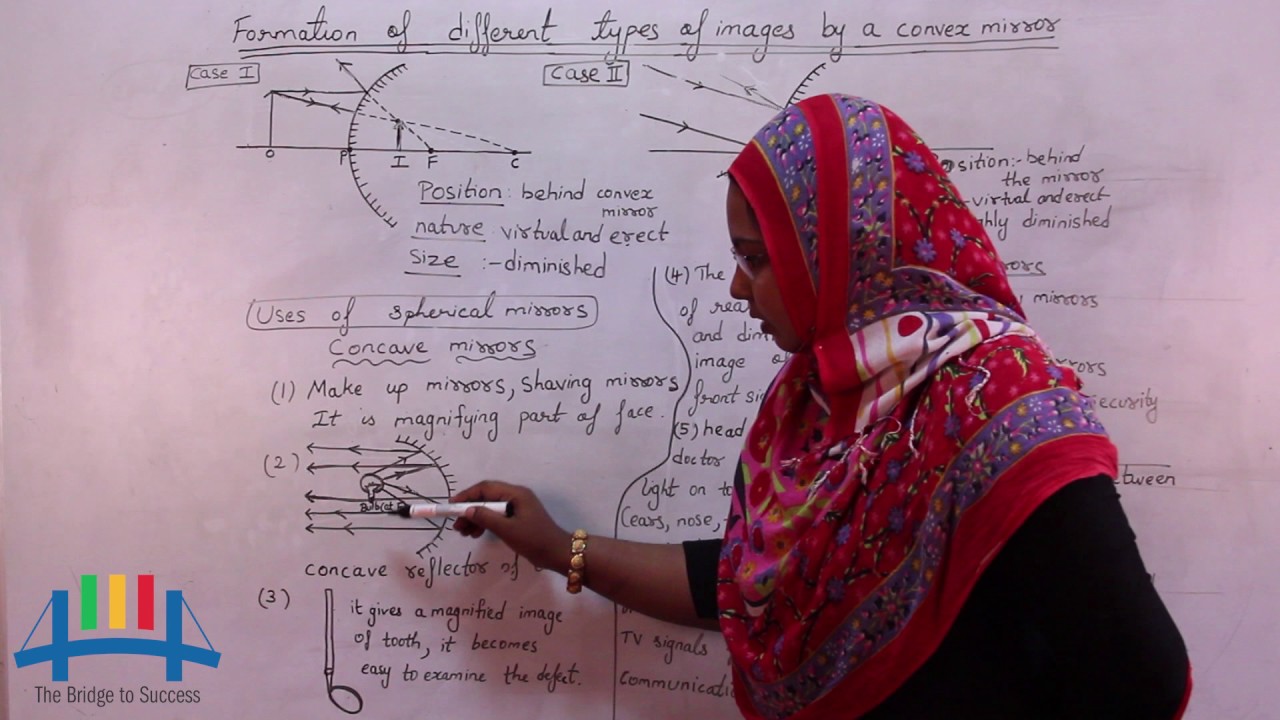 Formation of different types of images by a convex mirror
Case I
O P I F C
Position: behind convex
mirror
nature: virtual and erect
Size :- diminished
Case II
:- behind
the mirror
virtual and erect
diminished
Uses of spherical mirrors
Concave mirrors
(1) Make up mirrors, Shaving mirrors
It is magnifying part of face.
(2)
concave reflector of
(3)
it gives a magnified image
of tooth, it becomes
easy to examine the defect.
(4) The
of
and
image
front
(5) head
doctor
light on
(ears, nose,
TV signals
mirrors
The Bridge to Success